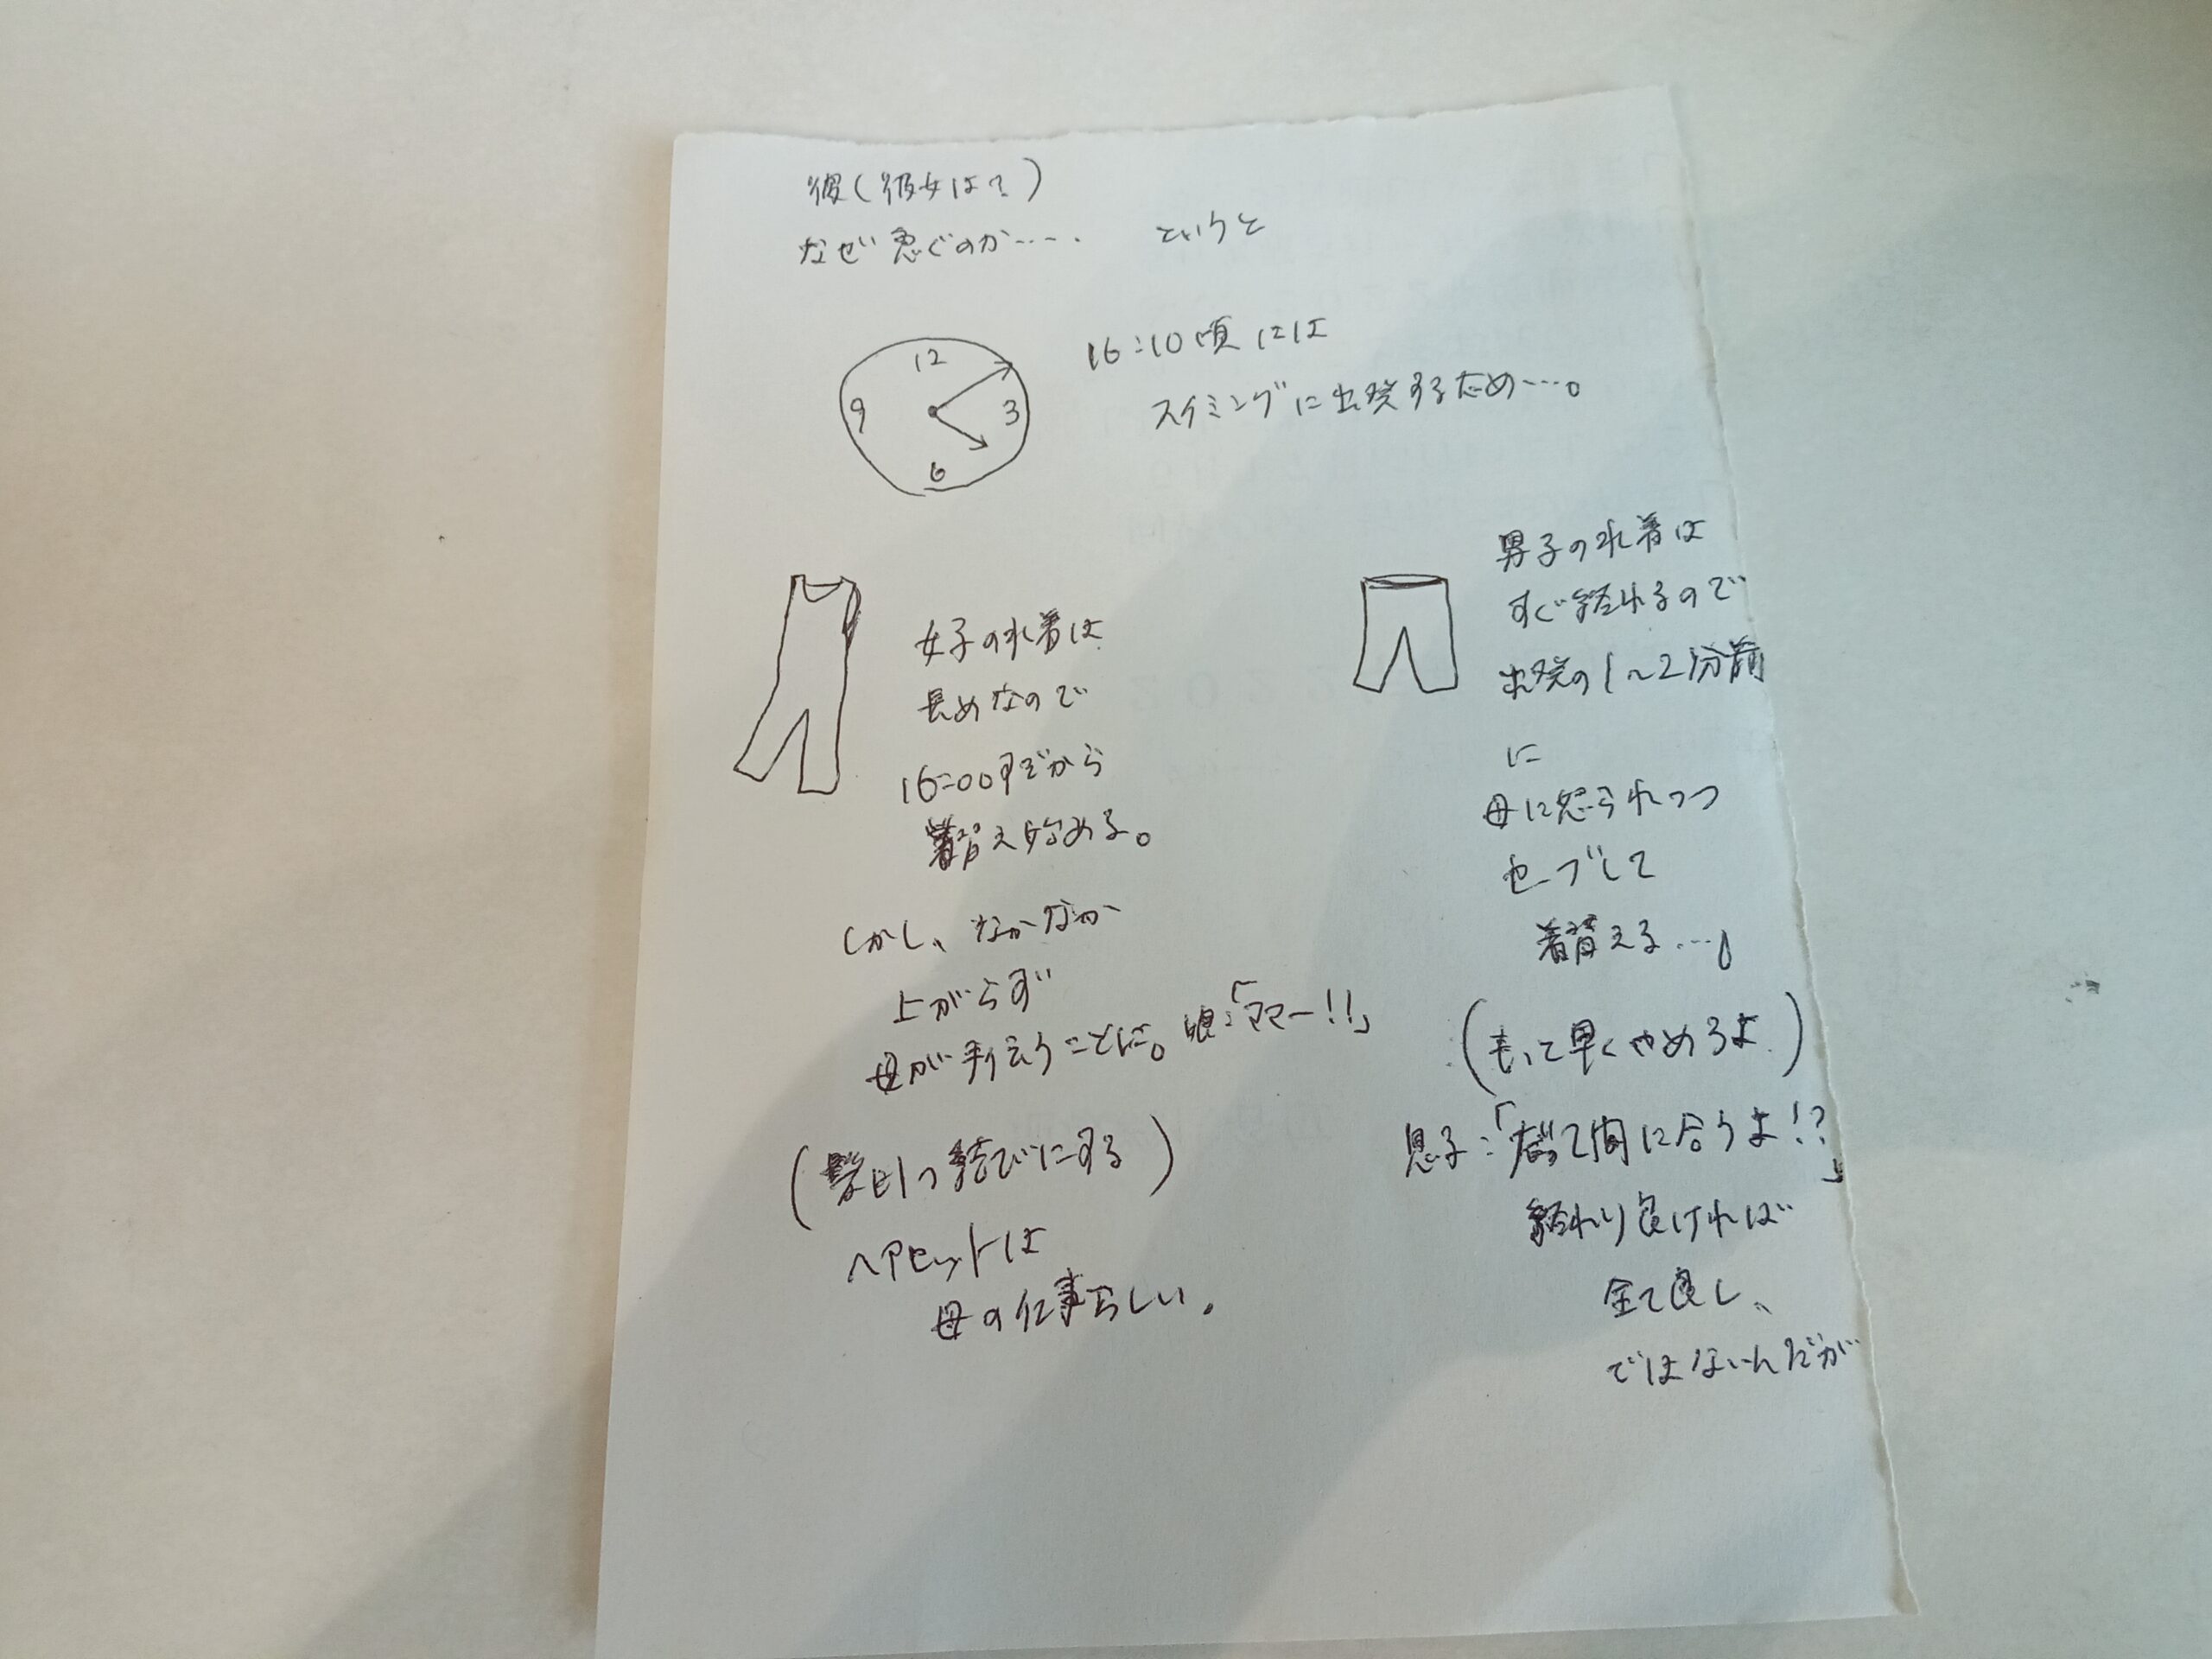 彼(彼女は?)
なぜ急ぐのか…‥ というと
12
9
3
6
16:10頃には
スイミングに出発するため…。
女子の水着は
長めなので
16:00すぎから
着替え始める。
しかし、なかなか
上がらず
母が手伝うことに。娘:「ママー!!」
(髪は1つ結びにする)
ヘアセットは
母の仕事らしい。
男子の水着は
すぐ終れるので
出発の1~2分前
に
母に怒られつつ
セーブして
着替える…。
(もって早くやめろよ)
息子:「だって間に合うよ!?」
終わり良ければ
全て良し、
ではないんだが